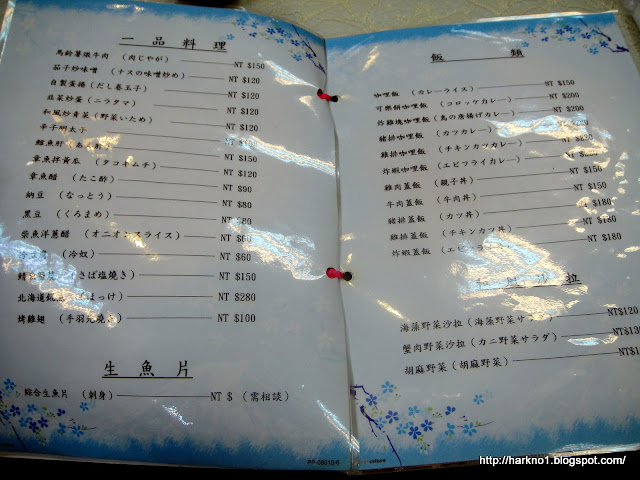 一品料理
馬鈴薯燉牛肉 (肉じゃが) NT $150
茄子炒味噌 (ナスの味噌炒め) NT $120
自製蛋捲 (だし巻玉子) NT $120
韭菜炒蛋 (ニラタマ) NT $120
和風炒青菜 (野菜いため) NT $120
辛子明太子 NT $120
NT $150
章魚拌黃瓜 (タコキムチ) NT $120
章魚醋 (たこ酢) NT $90
納豆 (なっとう) NT $80
黑豆 (くろまめ) $80
柴魚洋蔥醋 (オニオンスライス) NT $60
(冷奴) NT $60
さば塩焼き) NT $150
北海道 NT $280
烤雞翅 (手羽元焼き) NT $100
生魚片
綜合生魚片 (刺身) NT $ (需相談)
飯類
咖哩飯 (カレーライス) NT $150
可樂餅咖哩飯 (コロッケカレー) NT $200
炸雞塊咖哩飯 (鳥の唐揚げカレー) NT $200
豬排咖哩飯 (カツカレー) NT
雞排咖哩飯 (チキンカツカレー) NT
炸蝦咖哩飯 (エビフライカレー) NT
雞肉蓋飯 (親子丼) NT $150
牛肉蓋飯 (牛肉丼) NT $150
豬排蓋飯 (カツ丼) NT $180
雞排蓋飯 (チキンカツ丼) NT $180
炸蝦蓋飯 NT $180
沙拉
海藻野菜沙拉 (海藻野菜サラダ) NT$120
蟹肉野菜沙拉 (カニ野菜サラダ) NT$13
胡麻野菜 (胡麻野菜) NT$1
http://harkno1.blogspot.com/